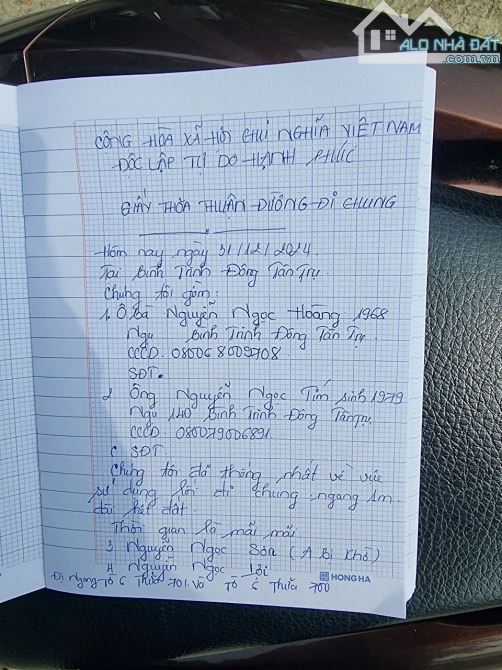 ALO NHÀ ĐẤT
.com.vn
CÔNG HÒA XÃ HỘI CHỦ NGHĨA VIỆT NAM
ĐỘC LẬP TỰ DO HẠNH PHÚC
GIẤY THỎA THUẬN ĐƯỜNG ĐI CHUNG
Hôm nay ngày 31/12/2024.
Tại Bình Trinh Đông Tân Trụ.
Chúng tôi gồm:
1. Ô bà Nguyễn Ngọc Hoàng 1968
Ngụ Bình Trinh Đông Tân Trụ.
CCCD. 080068009708
SĐT.
2 Ông Nguyễn Ngọc Tím sinh 1979
Ngụ 140 Bình Trinh Đông Tân Trụ
CCCD. 080079006891.
SĐT.
Chúng tôi đã thống nhất về việc
sử dụng lối đi chung ngang 1m.
dài hết đất.
Thời gian là mãi mãi
3 Nguyễn Ngọc Sơn (A Bi Khô)
4 Nguyễn Ngọc Lợi
Đi ngang Tờ 6 Thửa 701 và Tờ 6 Thửa 700
HONG HA